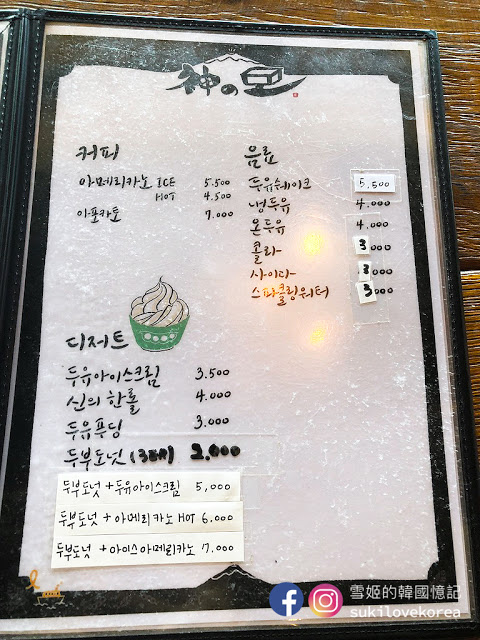 神の豆
커피
아메리카노 ICE 5.500
HOT 4.500
아포카토 7.000
음료
두유쉐이크 5,500
냉두유 4.000
온두유 4.000
콜라 3.000
사이다 3.000
스파클링워터 3.000
디저트
두유아이스크림 3.500
신의 한롤 4.000
두유푸딩 3.000
두부도넛 (3개) 2.000
두부도넛 + 두유아이스크림 5,000
두부도넛 + 아메리카노 HOT 6.000
두부도넛 + 아이스아메리카노 7.000
雪姬的韓國憶記
sukilovekorea